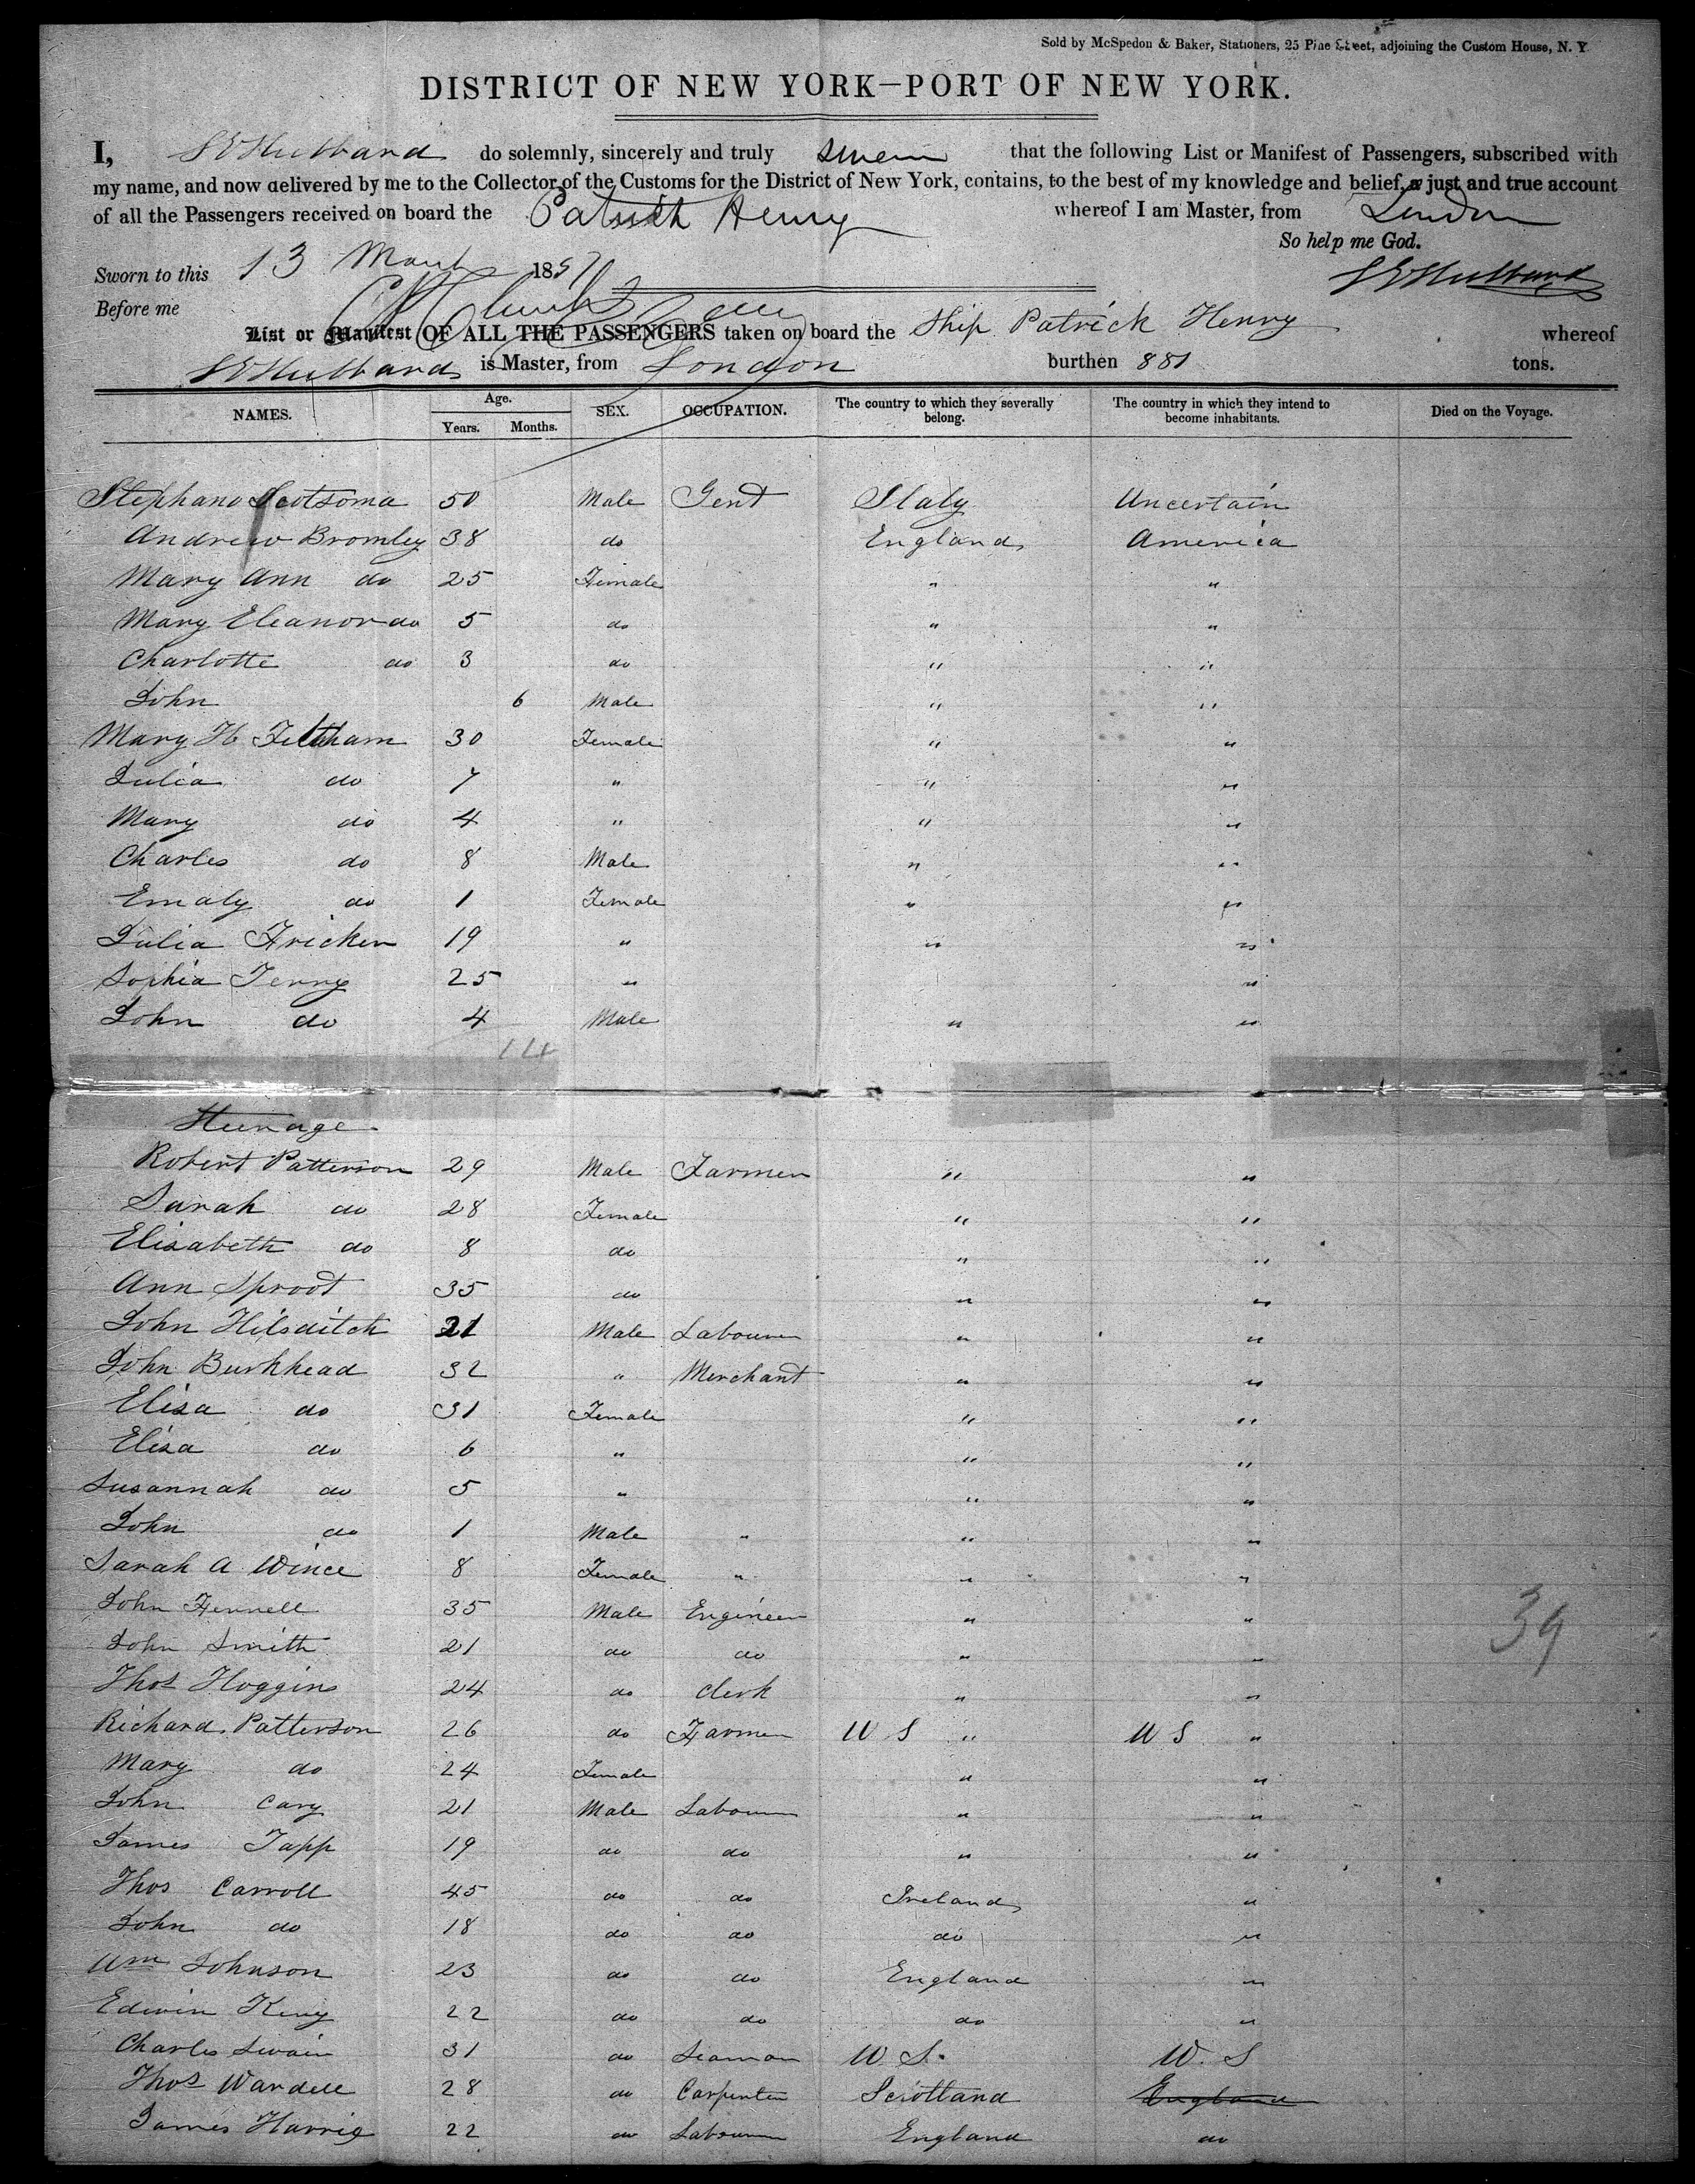 Sold by McSpedon & Baker, Stationers, 25 Pine Street, adjoining the Custom House, N. Y.
DISTRICT OF NEW YORK—PORT OF NEW YORK.
I, S E Hubbard do solemnly, sincerely and truly swear that the following List or Manifest of Passengers, subscribed with
my name, and now delivered by me to the Collector of the Customs for the District of New York, contains, to the best of my knowledge and belief, a just and true account
of all the Passengers received on board the Patrick Henry whereof I am Master, from London
So help me God.
Sworn to this 13 March 1857 S E Hubbard
Before me
List or Manifest OF ALL THE PASSENGERS taken on board the Ship Patrick Henry whereof
S E Hubbard is Master, from London burthen 881 tons.
NAMES. Age. Years. Months. SEX. OCCUPATION. The country to which they severally belong. The country in which they intend to become inhabitants. Died on the Voyage.
Stephano 50 Male Gent Italy Uncertain
Andrew Bromley 38 do England America
Mary Ann do 25 Female " "
Mary Eleanor do 5 do " "
Charlotte do 3 do " "
John 6 Male " "
Mary H Feltham 30 Female " "
Julia do 7 " " "
Mary do 4 " " "
Charles do 8 Male " "
Emaly do 1 Female " "
Julia Fricker 19 " " "
Sophia Terry 25 " "
John do 4 Male " "
14
Steerage
Robert Patterson 29 Male Farmer " "
Sarah do 28 Female " "
Elisabeth do 8 do " "
Ann Sproot 35 do " "
John Hilsditch 21 Male Labourer " "
John Burkhead 32 " Merchant " "
Elisa do 31 Female " "
Elisa do 6 " " "
Susannah do 5 " " "
John do 1 Male " " "
Sarah A Wince 8 Female " " "
John Fennell 35 Male Engineer " "
39
John Smith 21 do do " "
Thos Hoggins 24 do Clerk " "
Richard Patterson 26 do Farmer U S " U S "
Mary do 24 Female " "
John Cary 21 Male Labourer " "
James Tapp 19 do do " "
Thos Carroll 45 do do Ireland "
John do 18 do do do "
Wm Johnson 23 do do England "
Edwin King 22 do do do "
Charles Swain 31 do Seaman U S. U. S
Thos Wardell 28 do Carpenter Scotland England
James Harris 22 do Labourer England do